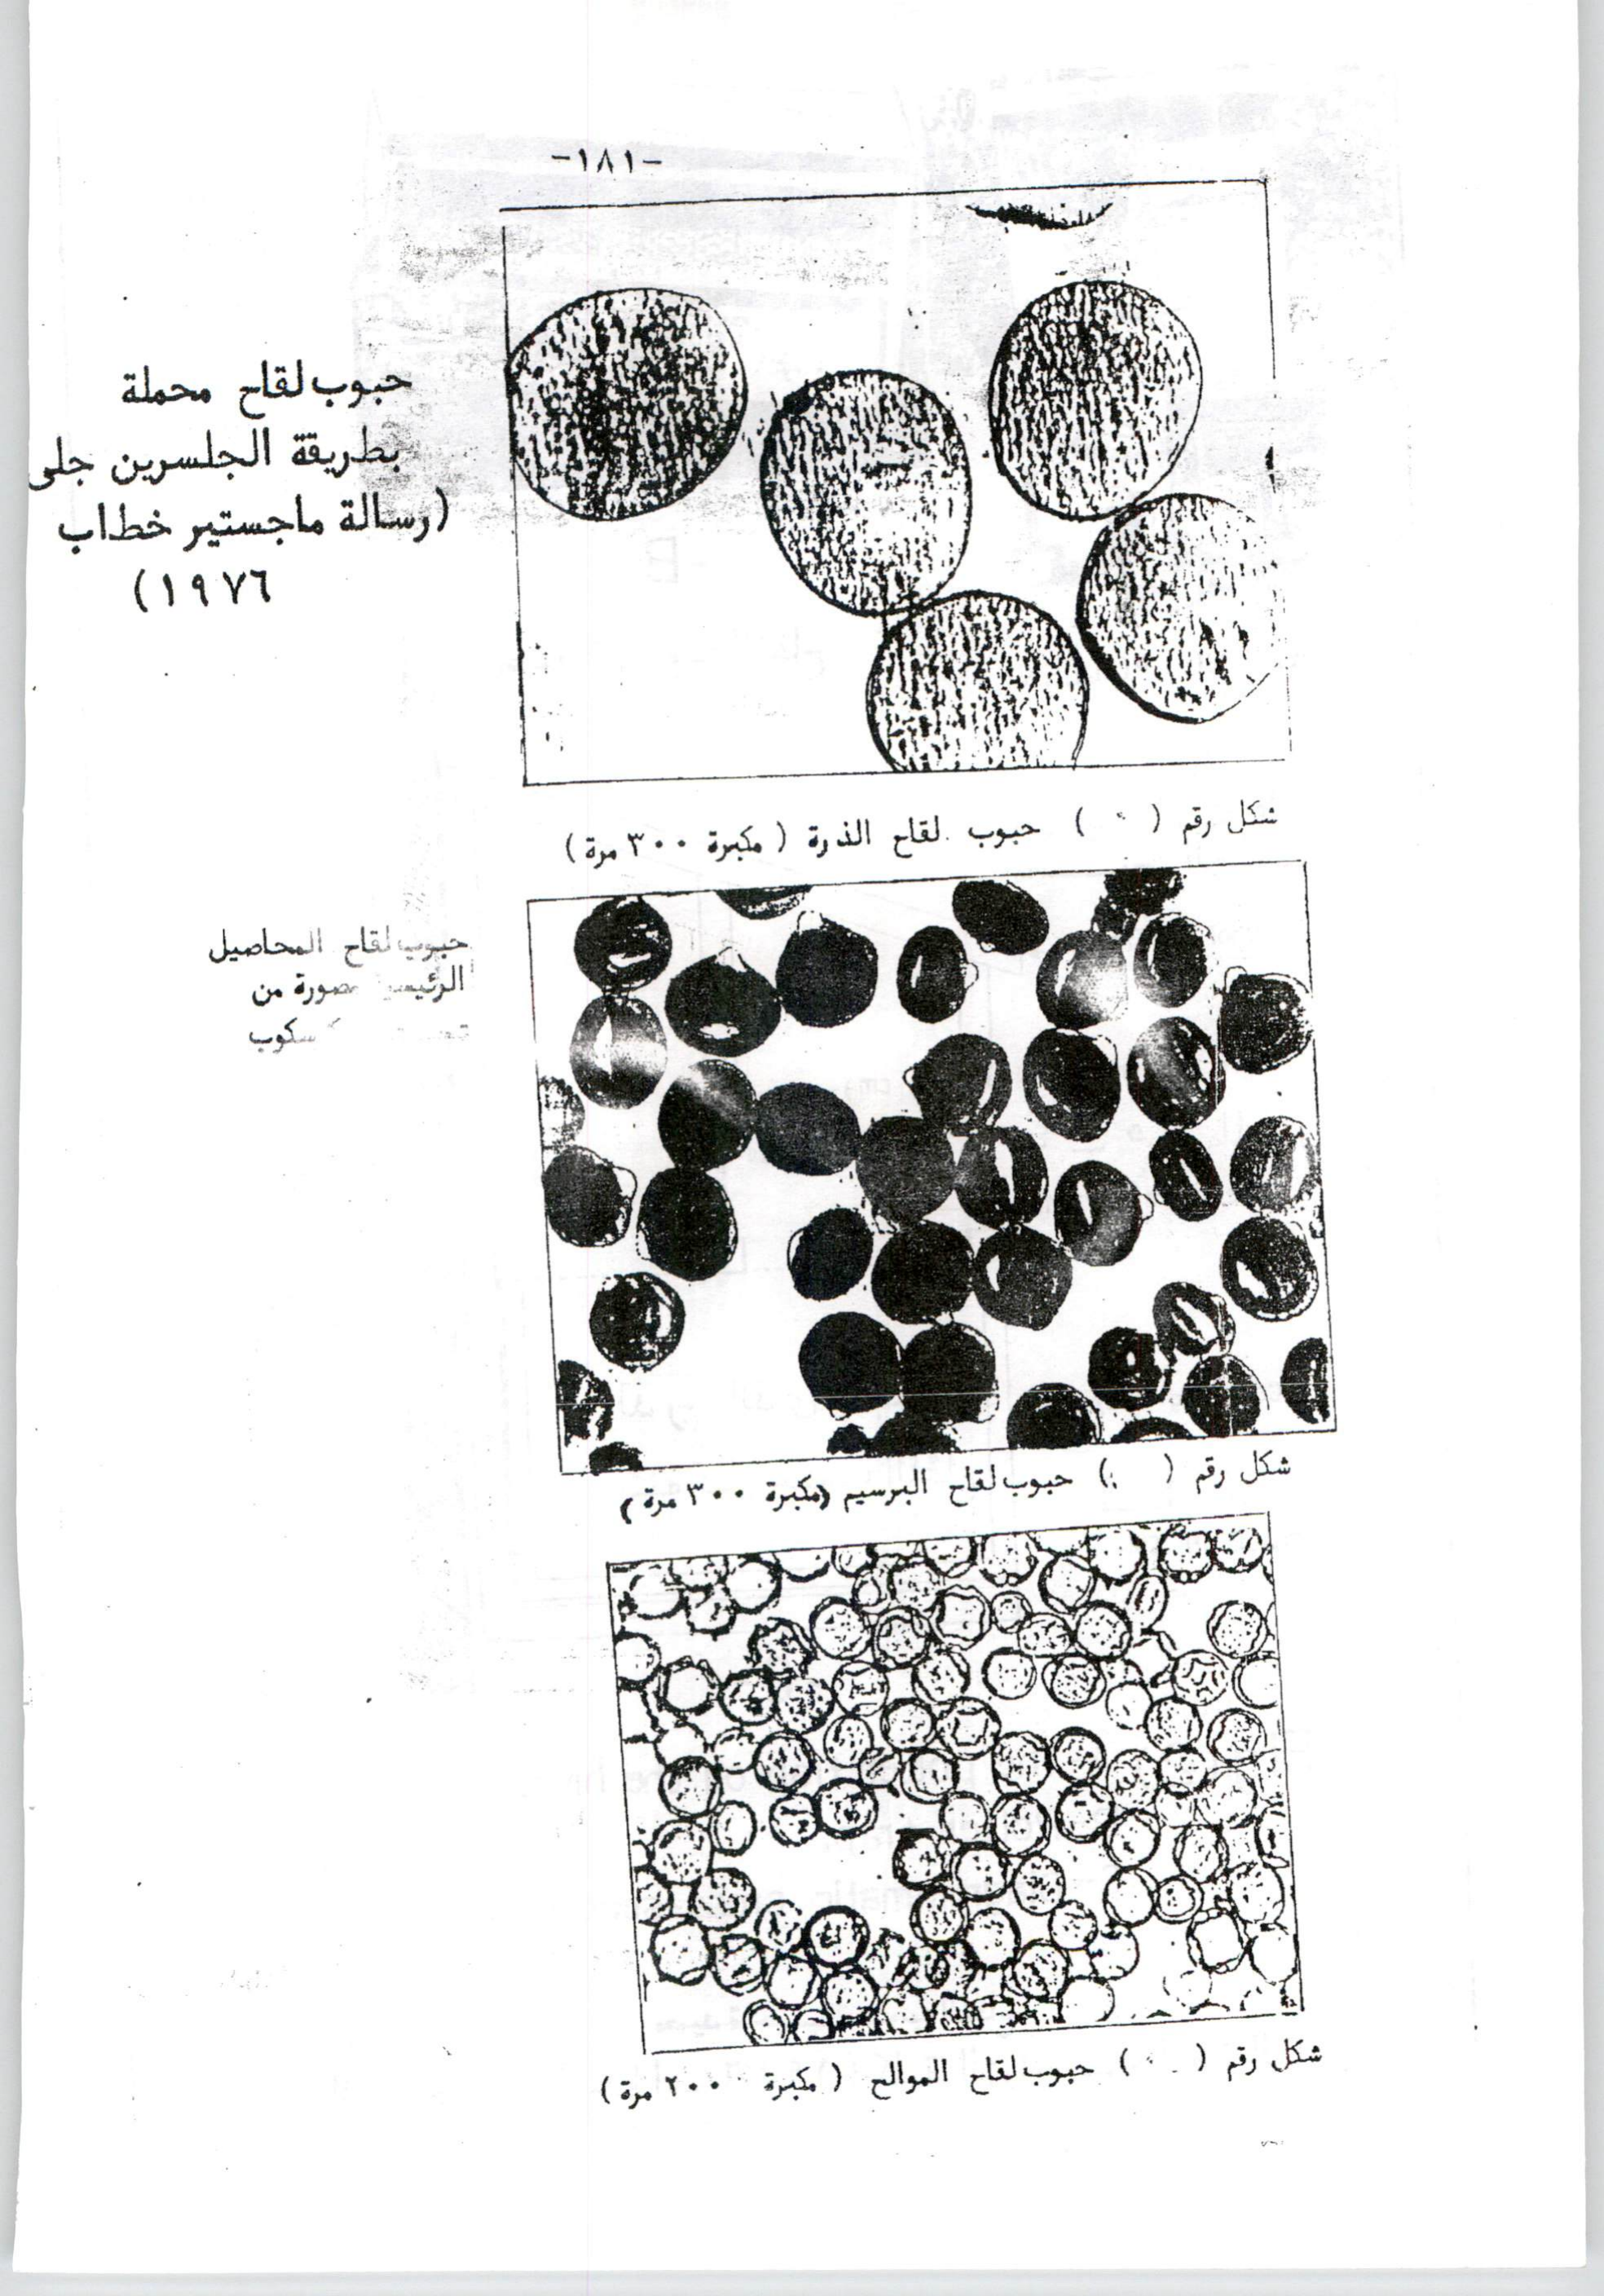 -١٨١-
حبوب لقاح محملة
بطريقة الجلسرين جلى
(رسالة ماجستير خطاب
١٩٧٦)
شكل رقم ( ) حبوب لقاح الذرة ( مكبرة ٣٠٠ مرة)
حبوب لقاح المحاصيل
مصورة من
شكل رقم ( ) حبوب لقاح البرسيم (مكبرة ٣٠٠ مرة)
شكل رقم ( ) حبوب لقاح الموالح ( مكبرة ٢٠٠ مرة)